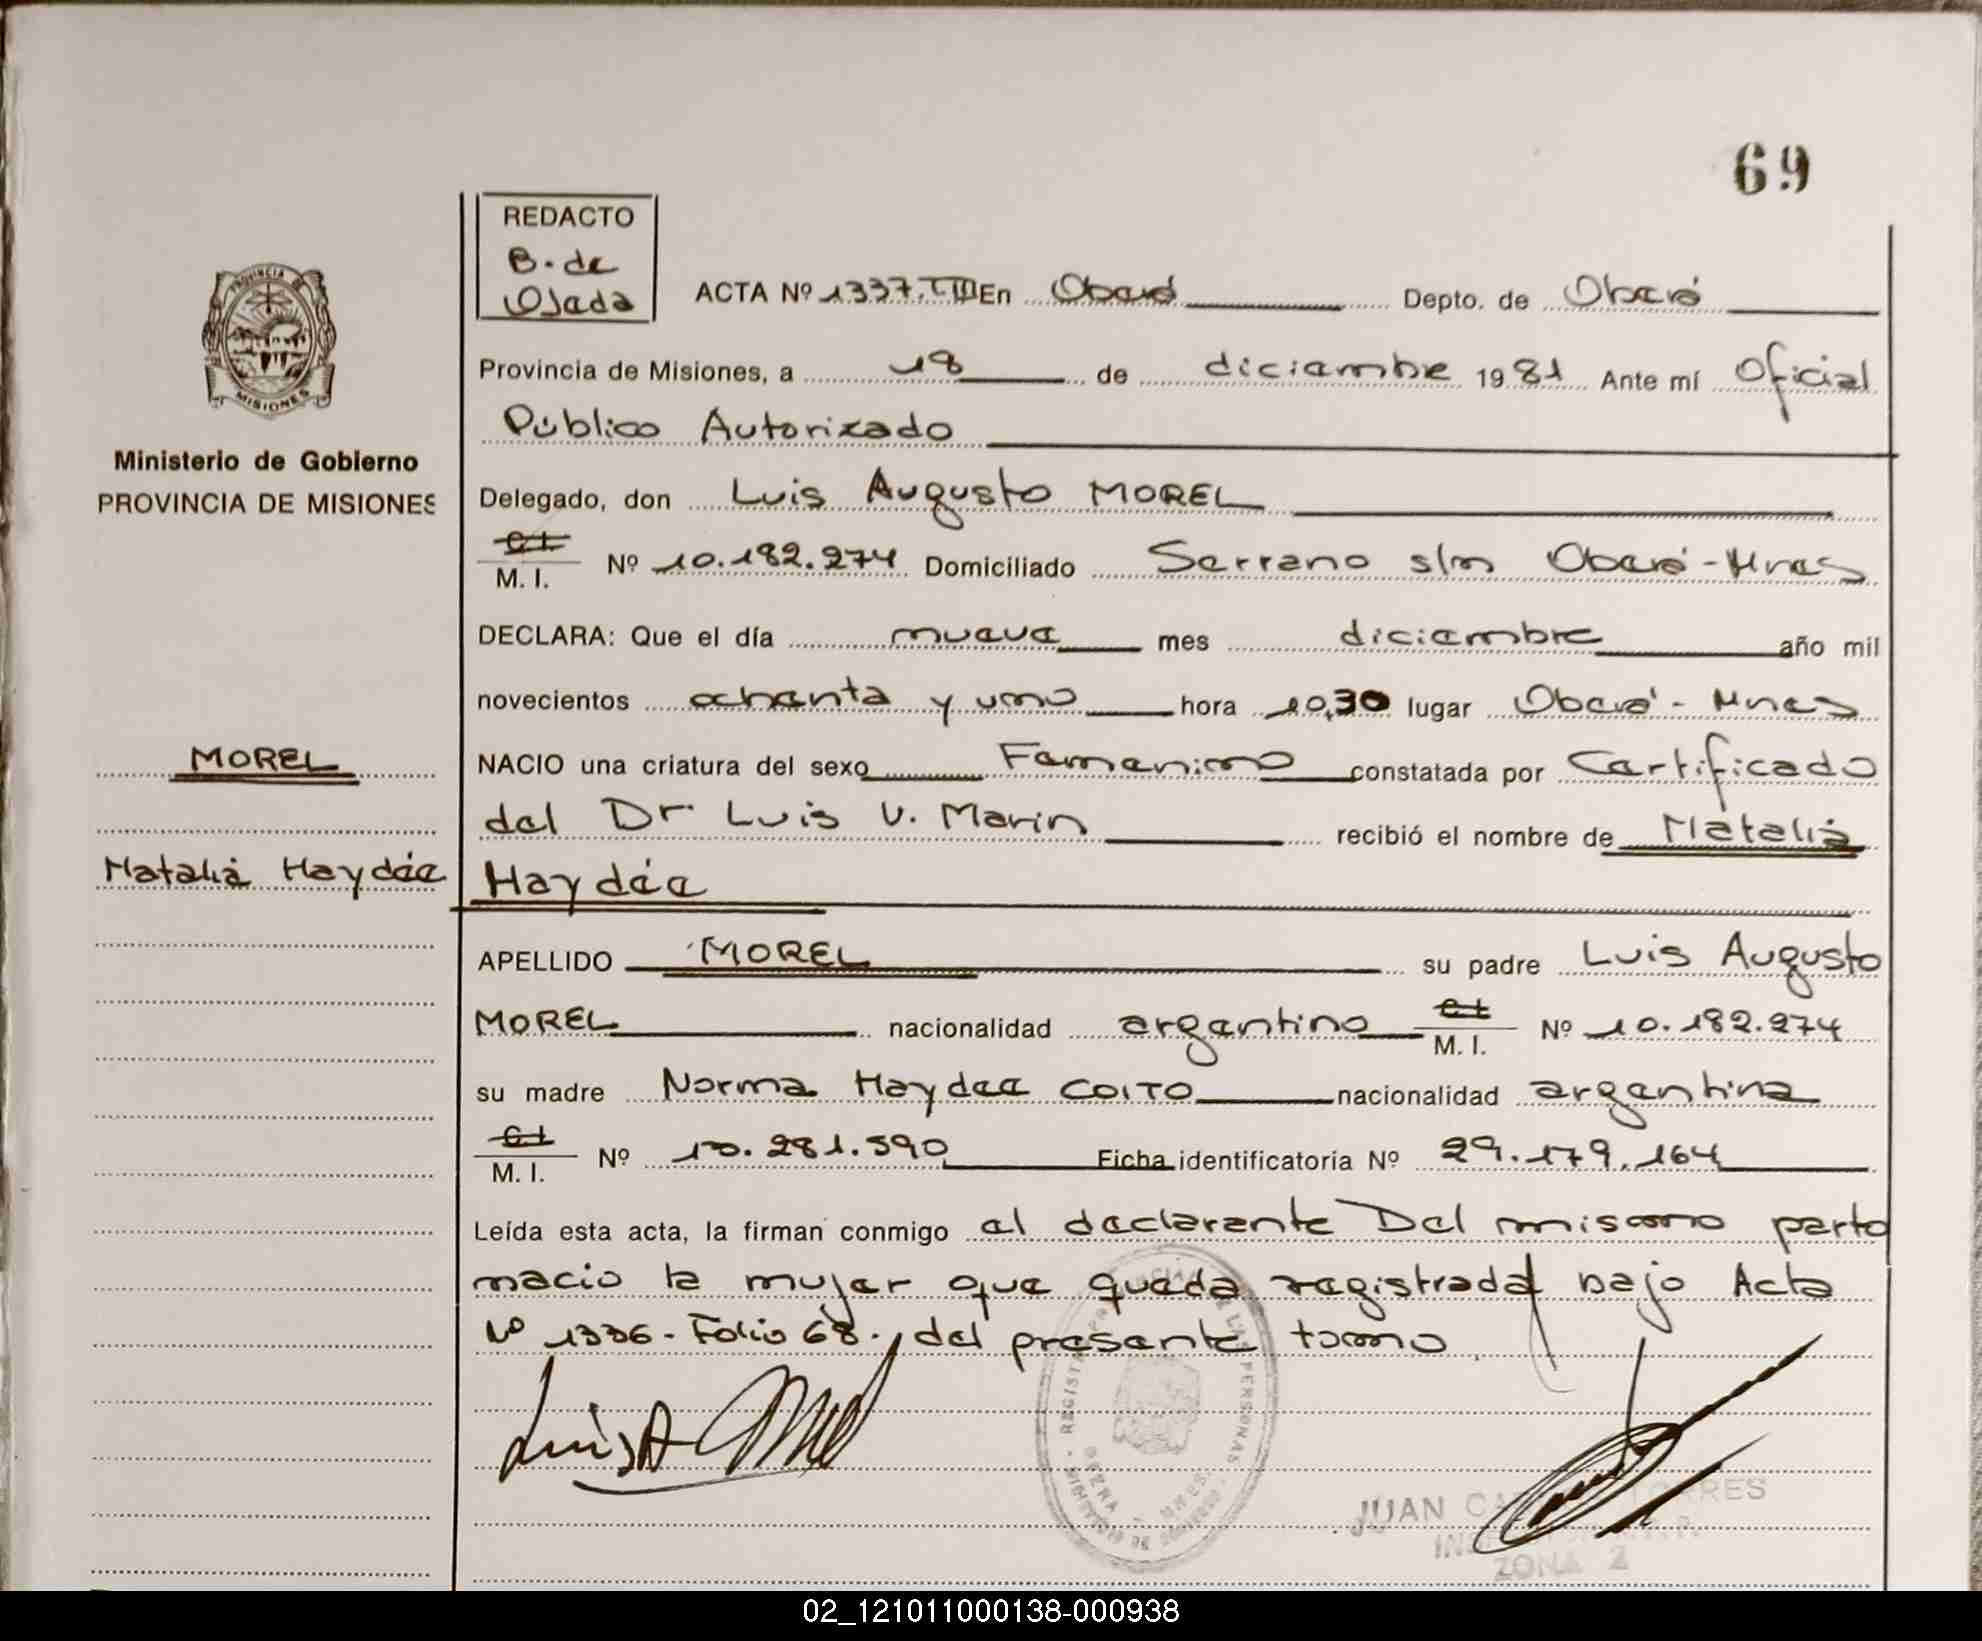 69
REDACTO
B. de
Ojeda
ACTA Nº 1337.TIII En Oberá Depto. de Oberá
PROVINCIA DE
MISIONES
Provincia de Misiones, a 18 de diciembre 1981 Ante mí Oficial
Público Autorizado
Ministerio de Gobierno
PROVINCIA DE MISIONES
Delegado, don Luis Augusto MOREL
C.I.
M. I. Nº 10.182.274 Domiciliado Serrano s/n Oberá-Mnes
DECLARA: Que el día nueve mes diciembre año mil
novecientos ochenta y uno hora 10,30 lugar Oberá - Mnes
MOREL
NACIO una criatura del sexo Femenino constatada por Certificado
del Dr Luis V. Marin recibió el nombre de Natalia
Natalia Haydée
Haydée
APELLIDO MOREL su padre Luis Augusto
MOREL nacionalidad argentino C.I. M. I. Nº 10.182.274
su madre Norma Haydee COITO nacionalidad argentina
C.I.
M. I. Nº 10.281.590 Ficha identificatoria Nº 29.179.164
Leída esta acta, la firman conmigo el declarante Del mismo parto
nacio la mujer que queda registrada bajo Acta
Nº 1336 - Folio 68 - del presente tomo
Luis A Morel
JUAN TORRES
ZONA 2
02_121011000138-000938